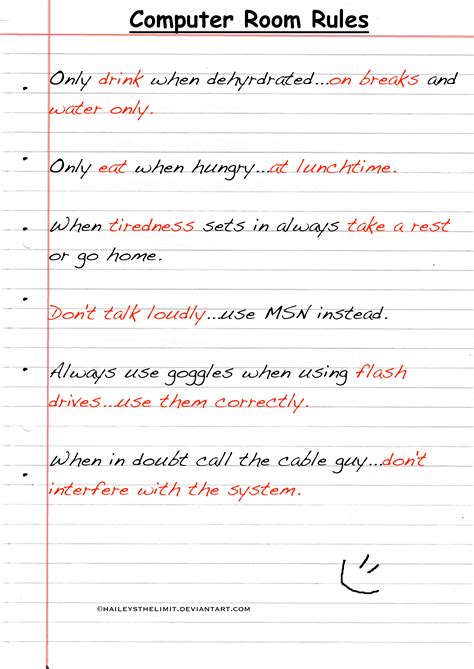 Computer Room Rules
Only drink when dehyrdrated...on breaks and
water only.
Only eat when hungry...at lunchtime.
When tiredness sets in always take a rest
or go home.
Don't talk loudly...use MSN instead.
Always use goggles when using flash
drives...use them correctly.
When in doubt call the cable guy...don't
interfere with the system.
©HAILEYSTHELIMIT.DEVIANTART.COM